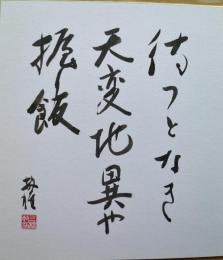 待つとなき
天変地異や
握飯
敏雄